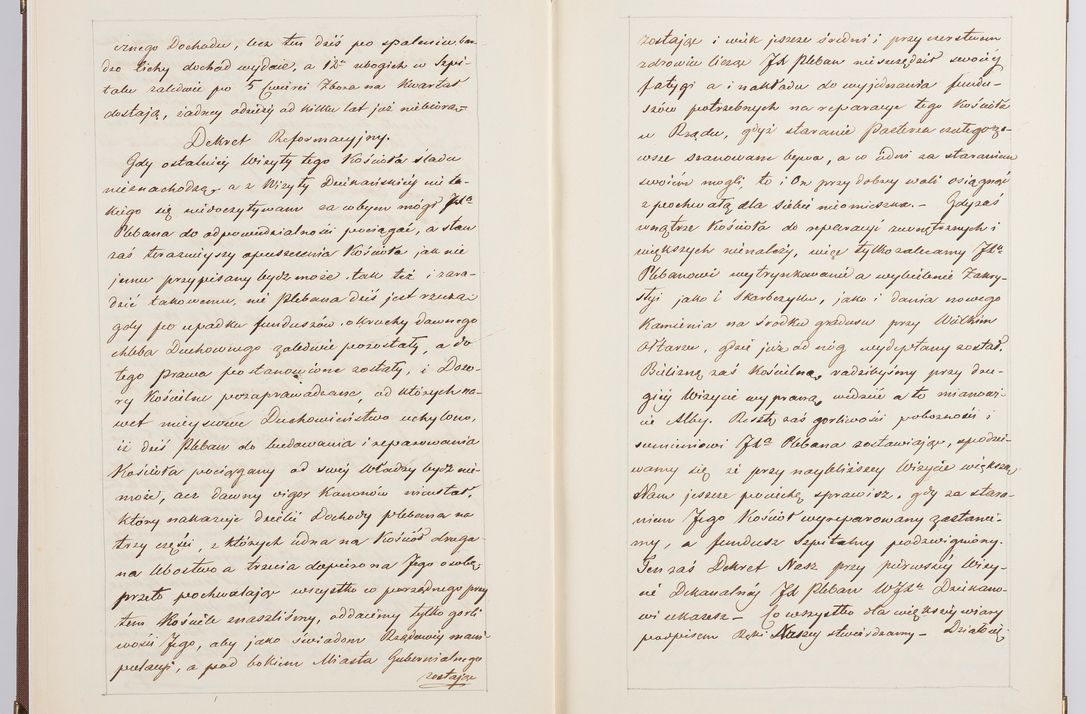 cznego Dochodu, lecz ten dziś po spaleniu bar-
dzo lichy dochód wydaie, a 12ᵗᵘ ubogich w Szpi-
talu zaledwie po 5 Cwierci Zboża na Kwartał
dostają, żadney odzieży od kilku lat już niebiorą.
Dekret Reformacyjny.
Gdy ostatniéy Wizyty tego Kościoła śladu
nieznachodzę, a z Wizyty Dziekańskiéy nic ta-
kiego się niedoczytywam za cobym mógł Jxᵃ
Plebana do odpowiedzialności pociągać, a stan
zaś teraznieyszy opuszczenia Kościoła jak nie
jemu przypisany bydź może, tak też i zara-
dzić takowemu, nie Plebana dziś jest rzeczą
gdy po upadku funduszów, okruchy dawnego
chleba Duchownego zaledwie pozostały, a do
tego prawa postanowione zostały, i Dozo-
ry Kościelne pozaprowadzane, od których na-
wet mieyscowe Duchowieństwo uchylono,
iż dziś Pleban do budowania i reparowania
Kościoła pociągany od swéj Władzy bydź nie
może, acz dawny vigor Kanonów nieustał,
który nakazuje dzielić Dochody plebana na
trzy części, z których iedna na Kościół druga
na Ubóstwo a trzecia dopiero na Jego osobę,
przeto pochwalając wszystko co porządnego przy
tem Kościele znaleźliśmy, oddaiemy tylko gorli
wości Jego, aby jako świadom Rządowéy mani-
pulacyi, a pod bokiem Miasta Gubernialnego
zostając
zostając i wiek jeszcze średni i przy czerstwem
zdrowiu licząc Jx Pleban nieszczędził swoiéy
fatygi a i nakładu do wyjednania fundu-
szów potrzebnych na reparacye tego Kościoła
u Rządu, gdyż staranie Pasterza czułego za-
wsze szanowane bywa, a co iedni za staraniem
swoiem mogli, to i On przy dobrey woli osiągnąć
z pochwałą dla siebie nieomieszka. – Gdy zaś
wnętrze Kościoła do reparacyi zewnętrznych i
większych nienależy, więc tylko zalecamy Jxᵃ
Plebanowi wytrynkowanie a wybielenie Zakry-
styi jako i Skarbczyku, jako i dania nowego
Kamienia na środku gradusu przy Wielkim
Ołtarzu, gdzie już od nóg wydeptany został.
Bieliznę zaś Kościelną, radzibyśmy przy dru-
giéy Wizycie wypraną widzieć a to mianowi-
cie Alby. Resztę zaś gorliwości pobożności i
sumieniowi Jxᵃ Plebana zostawiając, spodzie-
wamy się że przy naybliższey Wizycie większą
Nam jeszcze pociechę sprawisz, gdy za stara-
niem Jego Kościół wyreparowany zastanie-
my, a fundusz Szpitalny podzwigniony.
Ten zaś Dekret Nasz przy pierwszéy Wizy-
cie Dekanalnéy Jx Pleban WJxᵃ Dziekano-
wi ukażesz – Co wszystko dla większey wiary
podpisem Ręki Naszey stwierdzamy – Działo się